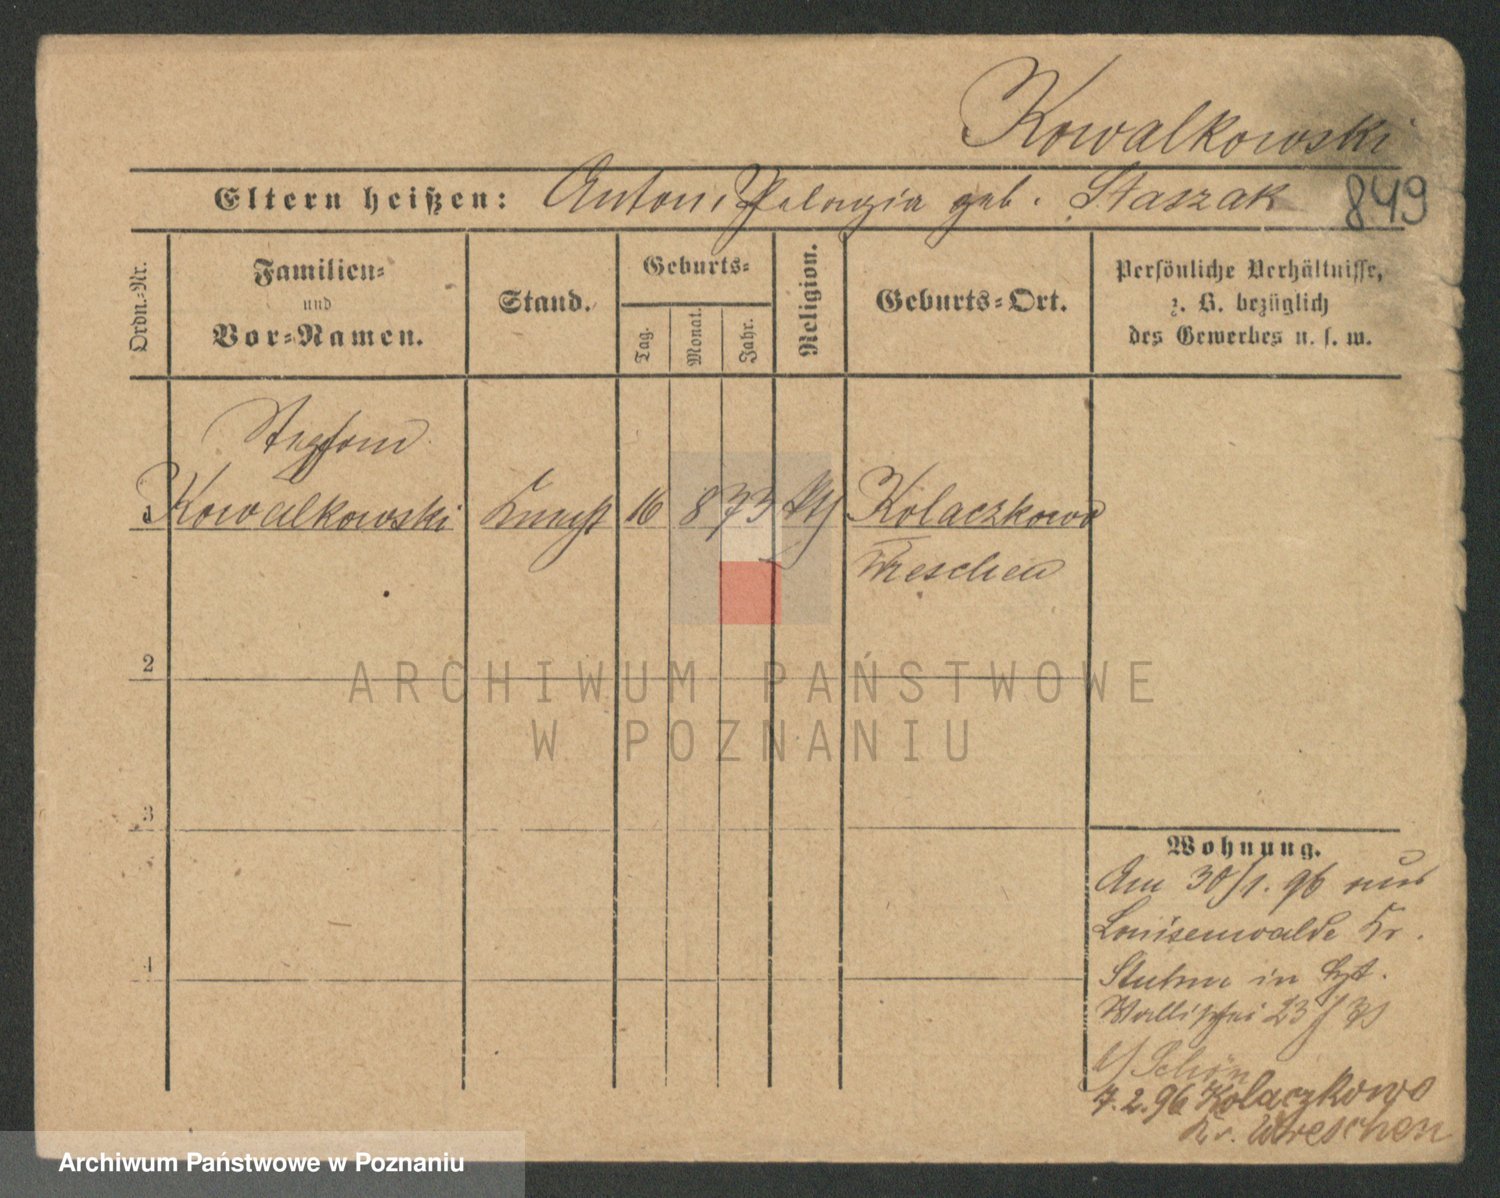 Kowalkowski
Eltern heißen: Anton, Pelagia geb. Staszak 849
Ordn.=Nr.
Familien=
und
Vor=Namen.
Stand.
Geburts=
Tag.
Monat.
Jahr.
Religion.
Geburts=Ort.
Persönliche Verhältnisse,
z. B. bezüglich
des Gewerbes u. s. w.
1 Kowalkowski Knecht 16 8 73 Kolaczkowo
Wreschen
2
3
4
Wohnung.
Am 30/1. 96 aus
Louisenwalde Kr.
Stuhm in
Wallischei 23
b/ Schön
7. 2. 96 Kolaczkowo
Kr. Wreschen
ARCHIWUM PAŃSTWOWE
W POZNANIU
Archiwum Państwowe w Poznaniu